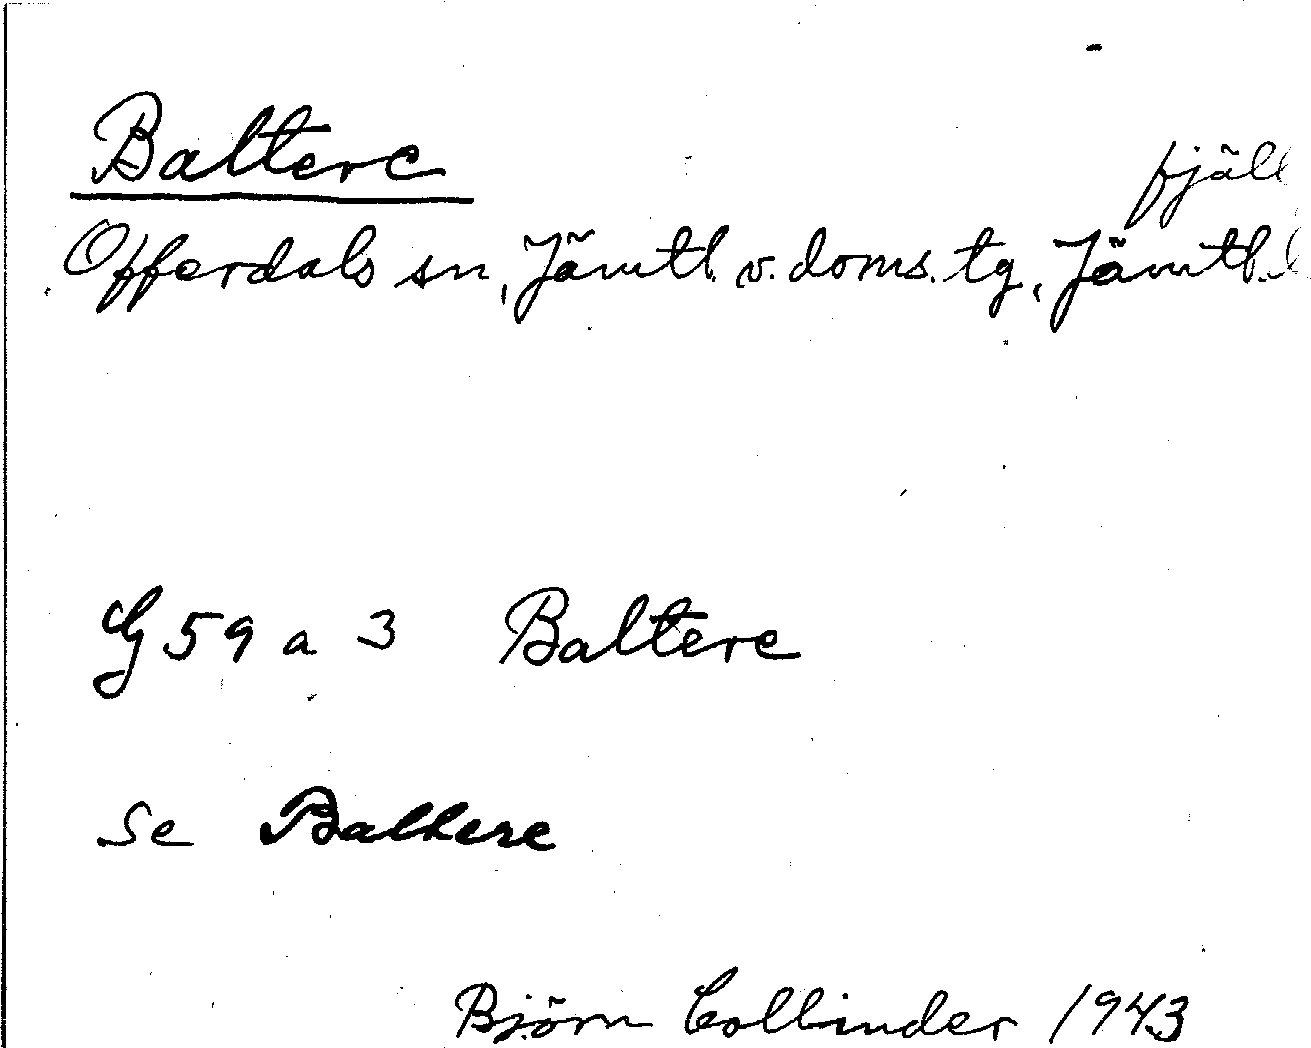 Baltere
fjäll
Offerdals sn, Jämtl. v. doms. tg, Jämtl. l
G 59 a 3 Baltere
se Balkere
Björn Collinder 1943